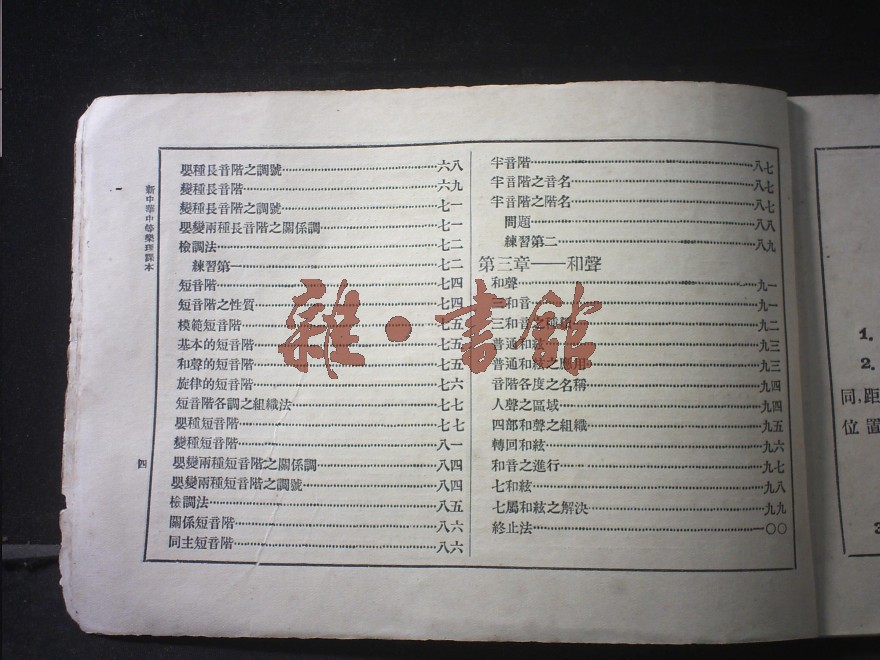 新中華中等樂理課本
四
嬰種長音階之調號……六八
變種長音階……六九
變種長音階之調號……七一
嬰變兩種長音階之關係調……七一
檢調法……七二
練習第一……七二
短音階……七四
短音階之性質……七四
模範短音階……七五
基本的短音階……七五
和聲的短音階……七五
旋律的短音階……七六
短音階各調之組織法……七七
嬰種短音階……七七
變種短音階……八一
嬰變兩種短音階之關係調……八四
嬰變兩種短音階之調號……八四
檢調法……八五
關係短音階……八六
同主短音階……八六
半音階……八七
半音階之音名……八七
半音階之階名……八七
問題……八八
練習第二……八九
第三章——和聲
和聲……九一
三和音……九一
三和音之種類……九二
普通和絃……九三
普通和絃之應用……九三
音階各度之名稱……九四
人聲之區域……九四
四部和聲之組織……九五
轉回和絃……九六
和音之進行……九七
七和絃……九八
七屬和絃之解決……九九
終止法……一〇〇
雜·書館
1.
2.
同,距
位置
3